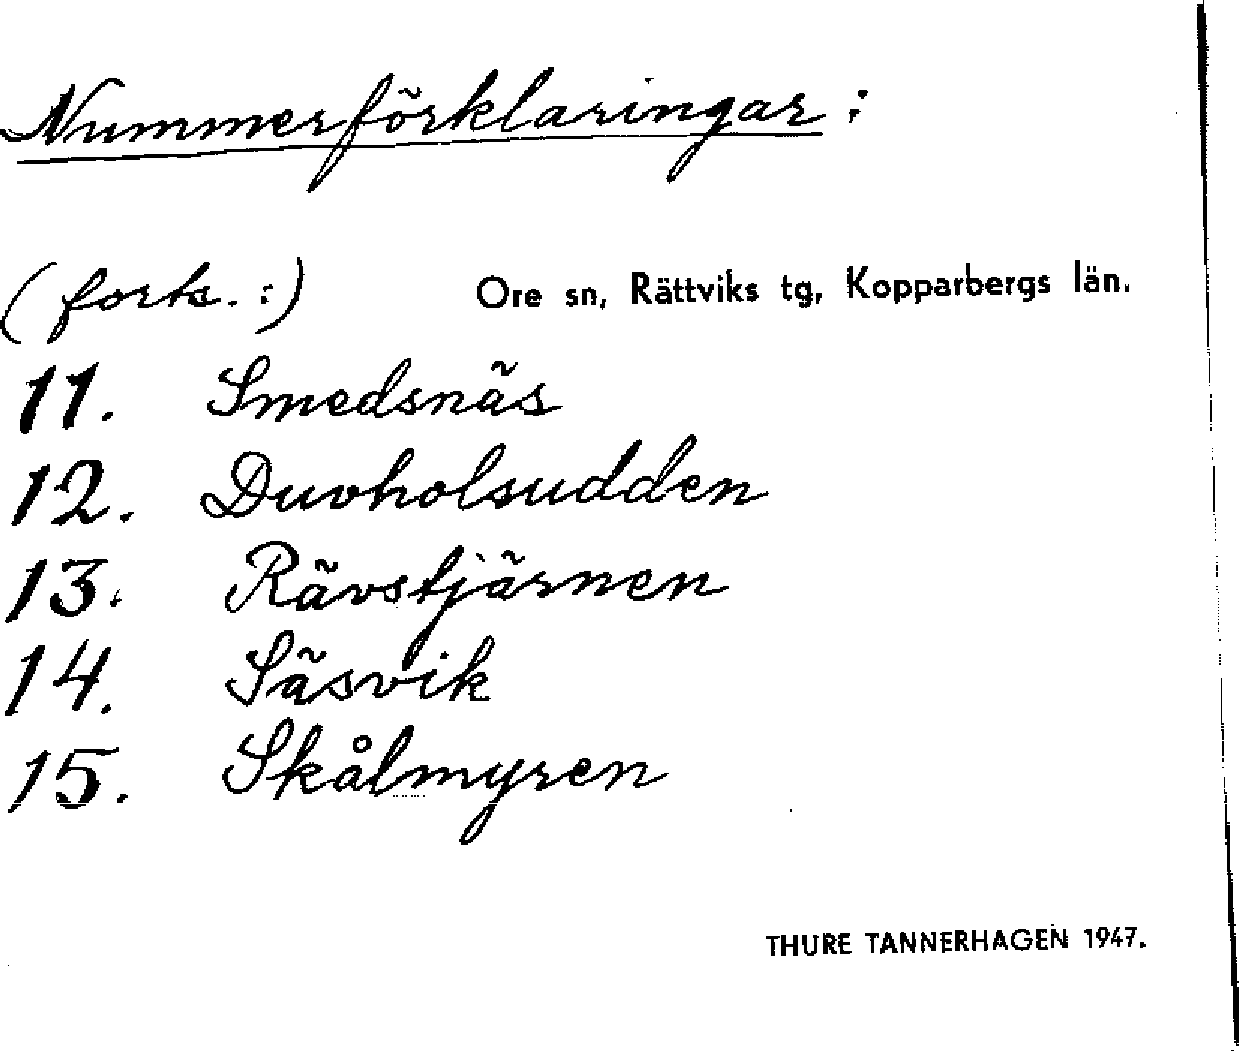 Nummerförklaringar :
(forts. :) Ore sn, Rättviks tg, Kopparbergs län.
11. Smedsnäs
12. Duvholsudden
13. Rävstjärnen
14. Säsvik
15. Skålmyren
THURE TANNERHAGEN 1947.